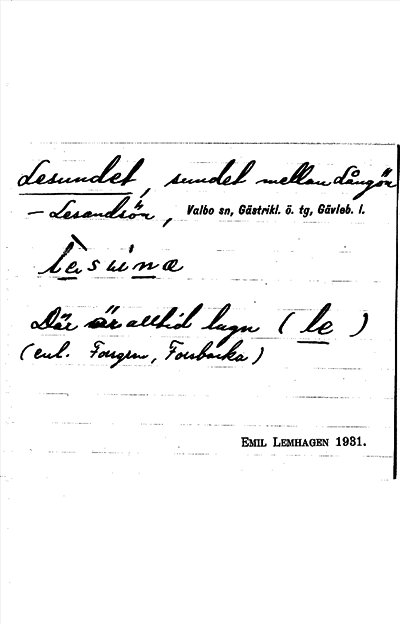 Lesundet, sundet mellan Långön
– Lesandsön, Valbo sn, Gästrikl. ö. tg, Gävleb. l.
Där är alltid lugn (le)
(enl. Forsgren, Forsbacka)
EMIL LEMHAGEN 1931.